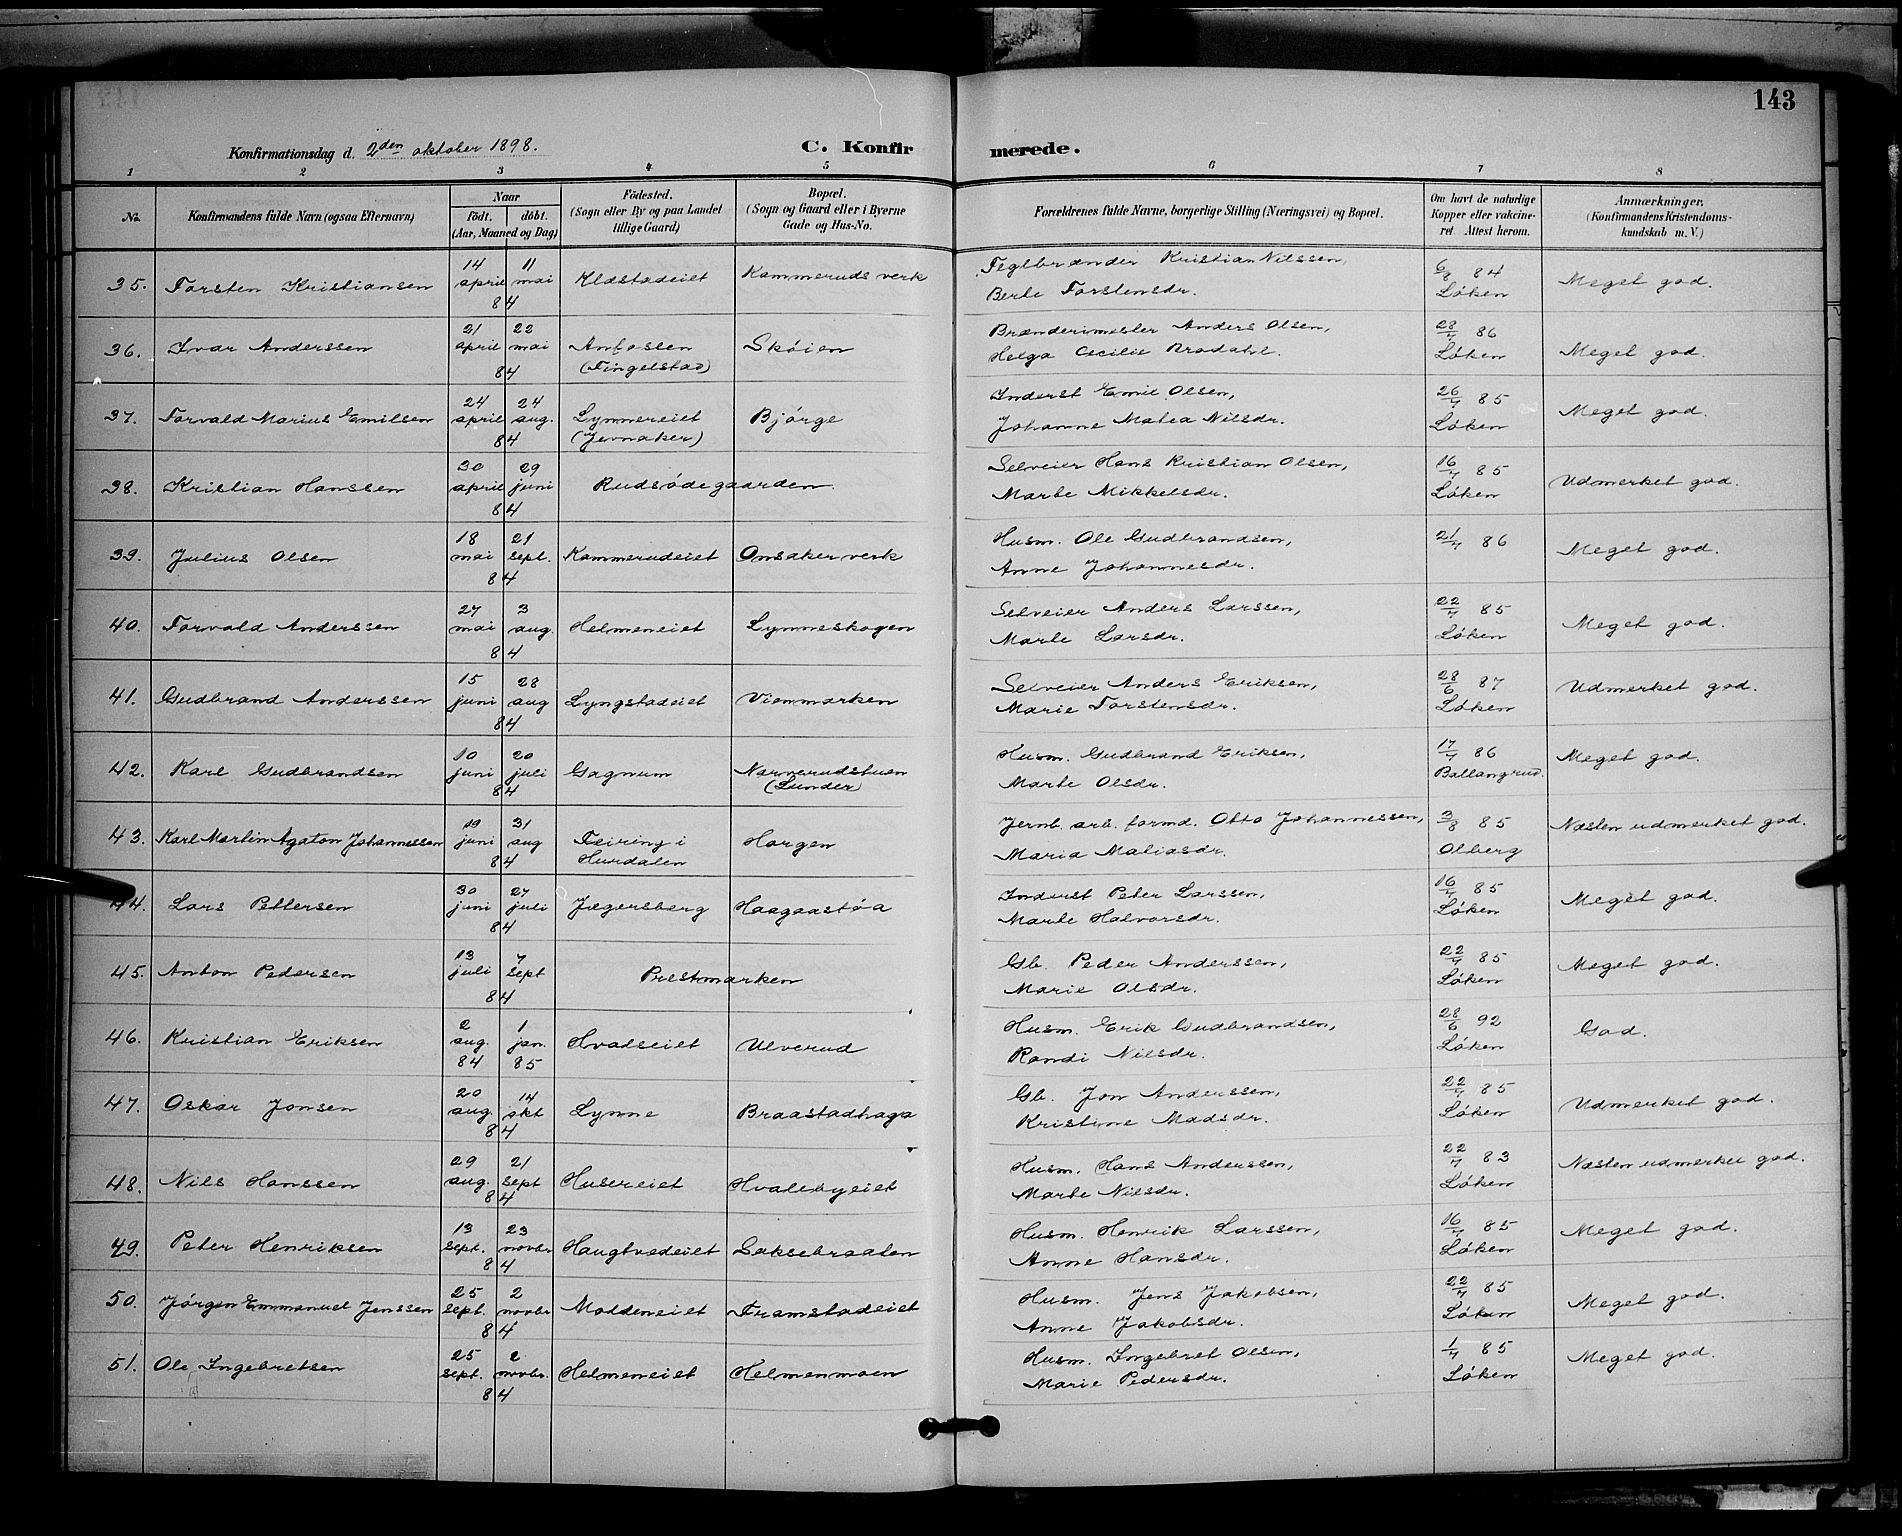 143
Konfirmationsdag d. 2den oktober 1898.
C. Konfir merede.
1 2 3 4 5 6 7 8
No.
Konfirmandens fulde Navn (ogsaa Efternavn)
Naar
födt. döbt.
(Aar, Maaned og Dag)
Födested.
(Sogn eller By og paa Landet
tillige Gaard)
Bopæl.
(Sogn og Gaard eller i Byerne
Gade og Hus-No.
Forældrenes fulde Navne, borgerlige Stilling (Næringsvei) og Bopæl.
Om havt de naturlige
Kopper eller vakcine-
ret. Attest herom.
Anmærkninger.
(Konfirmandens Kristendoms-
kundskab m. V.)
35. Torsten Kristiansen 14 april 11 mai 84 Aldstadeiet Kammeruds verk Teglbrænder Kristian Nilssen, 6/8 84
Berte Torstensdr. Løken Meget god.
36. Ivar Anderssen 21 april 22 mai 84 (Tingelstad) Skøien Brænderimester Anders Olsen, 28/7 86
Helga Cecilie Brodahl. Løken Meget god.
37. Torvald Marius Emilsen 24 april 24 aug. 84 Lynnereiet (Jevnaker) Bjørge Inderst Emil Olsen, 26/7 85
Johanne Matea Nilsdr. Løken Meget god.
38. Kristian Hanssen 30 april 29 juni 84 Rudsødegaarden Selveier Hans Kristian Olsen, 16/7 85
Marte Mikkelsdr. Løken Udmerket god.
39. Julius Olsen 18 mai 21 sept. 84 Kammerudeiet Onsaker verk Husm. Ole Gudbrandsen, 21/7 86
Anne Johannesdr. Meget god.
40. Torvald Anderssen 27 mai 3 aug. 84 Helmeneiet Lynneskogen Selveier Anders Larssen, 22/7 85
Marte Larsdr. Løken Meget god.
41. Gudbrand Anderssen 15 juni 28 aug 84 Lyngstadeiet Vienmarken Selveier Anders Eriksen, 28/6 87
Marie Torstensdr. Løken Udmerket god.
42. Karl Gudbrandsen 10 juni 20 juli 84 Gagnum Narverudstuen (Lunder) Husm. Gudbrand Eriksen, 17/7 86
Marte Olsdr. Ballangrud. Meget god.
43. Karl Martin Agaton Johannessen 19 juni 31 aug 84 Feiring i Hurdalen Horgen Jernb. arb. formd. Otto Johannessen, 3/8 85
Maria Maliasdr. Olberg Næsten udmerket god.
44. Lars Pettersen 30 juni 27 juli 84 Jægersberg Haagaastøa Inderst Peter Larssen, 16/7 85
Marte Halvorsdr. Løken Meget god.
45. Anton Pedersen 13 juli 7 sept 84 Prestmarken Gb. Peder Anderssen, 22/7 85
Marie Olsdr. Løken Meget god.
46. Kristian Eriksen 2 aug. 84 1 jan. 85 Hvalseiet Ulverud Husm. Erik Gudbrandsen, 28/6 92
Randi Nilsdr. Løken God.
47. Oskar Jonsen 20 aug. 14 okt 84 Lynne Braastadhaga Gb. Jon Anderssen, 22/7 85
Kristine Madsdr. Løken Udmerket god.
48. Nils Hanssen 29 aug. 21 sept 84 Husereiet Hvalebyeiet Husm. Hans Anderssen, 22/7 83
Marte Nilsdr. Løken Næsten udmerket god.
49. Peter Henriksen 13 sept. 23 novbr 84 Haugtvedeiet Saksebraaten Husm. Henrik Larssen, 16/7 85
Anne Hansdr. Løken Meget god.
50. Jørgen Emmanuel Jenssen 25 sept. 2 novbr 84 Moldeneiet Framstadeiet Husm. Jens Jakobsen, 22/7 85
Anne Jakobsdr. Løken Meget god.
51. Ole Ingebretsen 25 sept. 2 novbr. 84 Helmeneiet Helmenmoen Husm. Ingebret Olsen, 1/7 85
Marie Pedersdr. Løken Meget god.